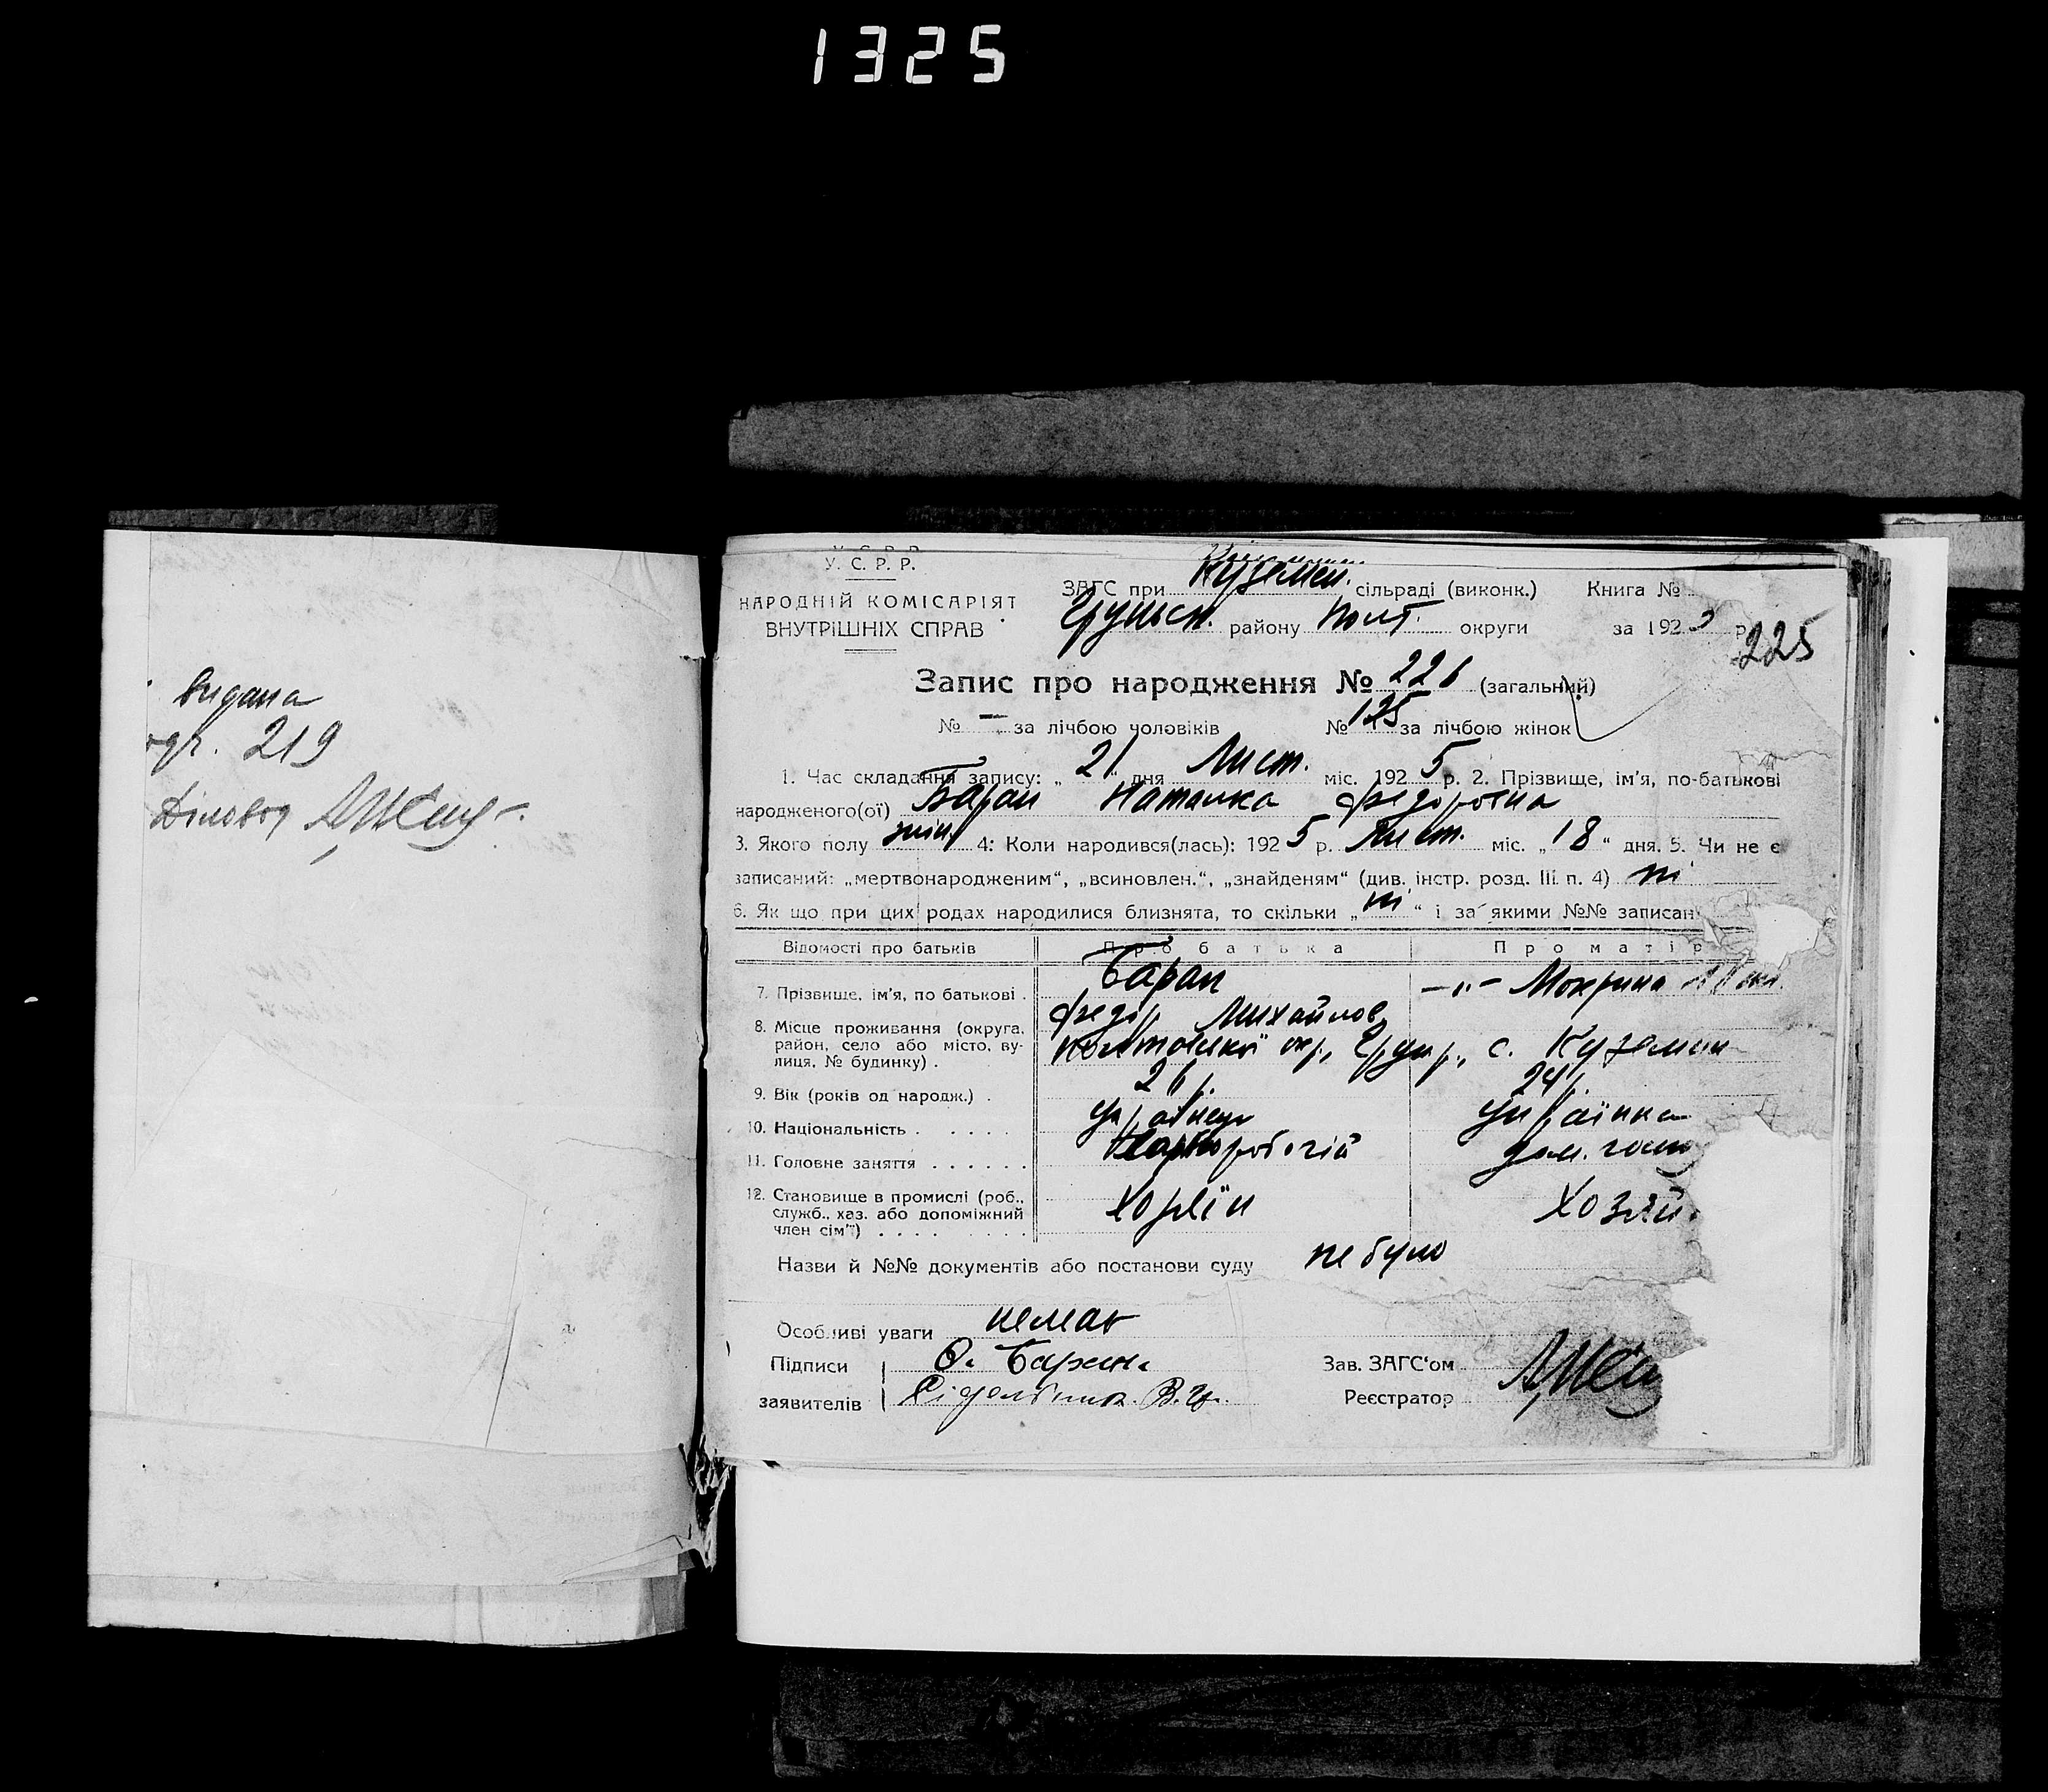 1325
видана
219
Діловод
У. С. Р. Р.
НАРОДНІЙ КОМІСАРІЯТ
ВНУТРІШНІХ СПРАВ
ЗАГС при Куземен. сільраді (виконк.) Книга №
Груньськ. району Полт. округи за 192 р.
225
Запис про народження № 226 (загальний)
№ — за лічбою чоловіків № 125 за лічбою жінок
1. Час складання запису: „ 21 “ дня Лист. міс. 1925 р. 2. Прізвище, ім'я, по-батькові
народженого(ої) Баран Наталка Федоровна
3. Якого полу жін. 4. Коли народився(лась): 1925 р. Лист. міс. „ 18 “ дня. 5. Чи не є
записаний: „мертвонародженим“, „всиновлен.“, „знайденям“ (див. інстр. розд. III п. 4) ні
6. Як що при цих родах народилися близнята, то скільки „ ні “ і за якими №№ записан
Відомості про батьків Про батька Про матір
7. Прізвище, ім'я, по батькові . Баран —„— Мокрина
Федір Михайлов.
8. Місце проживання (округа,
район, село або місто, ву-
лиця, № будинку) . Полтовської окр., Грун. р., с. Куземин
9. Вік (років од народж.) . 26 р. 24 р.
10. Національність . . . . . Українець Українка
11. Головне заняття . . . . . . Хлібороб дом. госп
12. Становище в промислі (роб.,
служб., хаз. або допоміжний
член сім'ї) . . . . . . . . Хозяїн Хозяй.
Назви й №№ документів або постанови суду не було
Особливі уваги немає
Підписи О. Баран. Зав. ЗАГС'ом
заявителів Реєстратор